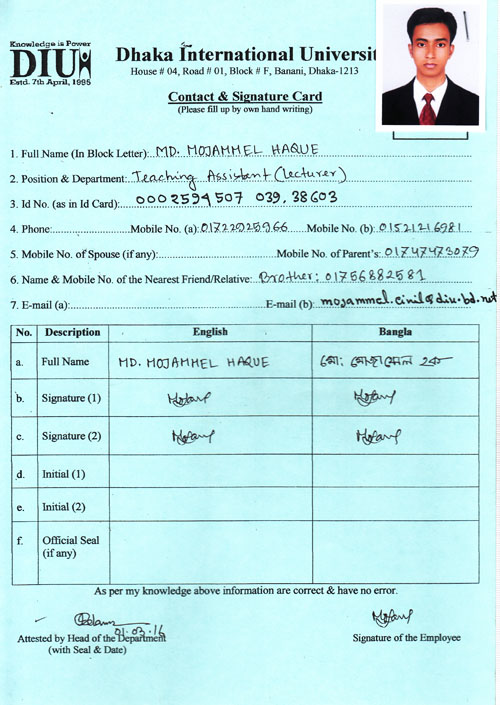 Knowledge is Power
DIU
Estd. 7th April, 1995
Dhaka International Universit
House # 04, Road # 01, Block # F, Banani, Dhaka-1213
Contact & Signature Card
(Please fill up by own hand writing)
1. Full Name (In Block Letter): MD. MOJAMMEL HAQUE
2. Position & Department: Teaching Assistant (Lecturer)
3. Id No. (as in Id Card): 0002594507 039,38603
4. Phone: Mobile No. (a): 01722925966 Mobile No. (b): 01521216981
5. Mobile No. of Spouse (if any): Mobile No. of Parent's: 01747473079
6. Name & Mobile No. of the Nearest Friend/Relative: Brother: 01756882581
7. E-mail (a): E-mail (b): mojammel.civil@diu-bd.net
No. Description English Bangla
a. Full Name MD. MOJAMMEL HAQUE মো: মোজাম্মেল হক
b. Signature (1)
c. Signature (2)
d. Initial (1)
e. Initial (2)
f. Official Seal
(if any)
As per my knowledge above information are correct & have no error.
01.03.16
Attested by Head of the Department
(with Seal & Date)
Signature of the Employee